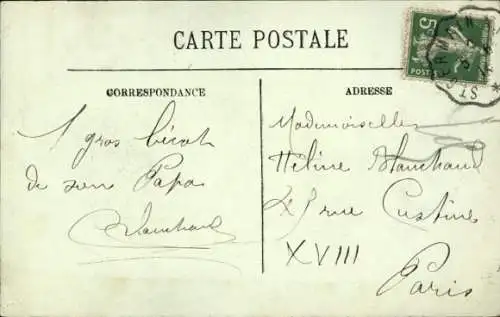 CARTE POSTALE
CORRESPONDANCE
ADRESSE
1 gros bécot
de son Papa
Blanchard
Mademoiselle
Hélène Blanchard
rue Custine
XVIII
Paris
5
POSTES
ST GERMAIN